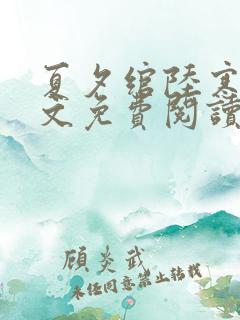 夏夕绾陆寒
文免费阅读
顾炎武
未经同意禁止转载